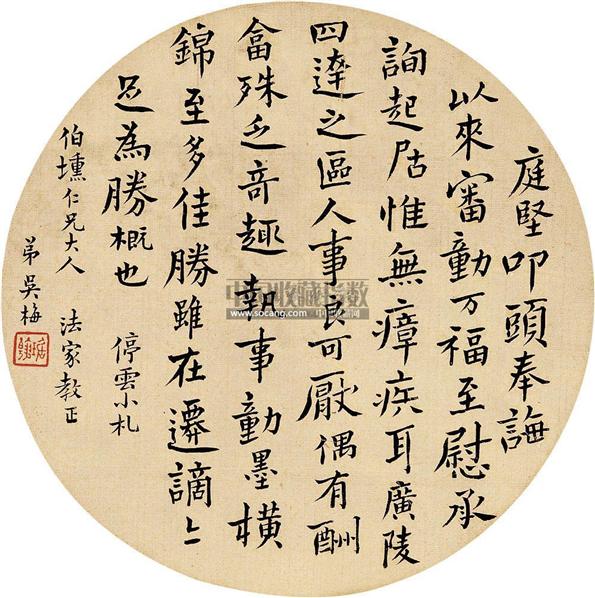 庭堅叩頭奉誨
以來審動万福至慰承
詢起居惟無瘴疾耳廣陵
四達之區人事良可厭偶有酬
畣殊乏奇趣執事動墨橫
錦至多佳勝雖在遷謫亦
足為勝概也
停雲小札
伯壎仁兄大人 法家教正
弟吳梅
中国收藏指数
www.socang.com